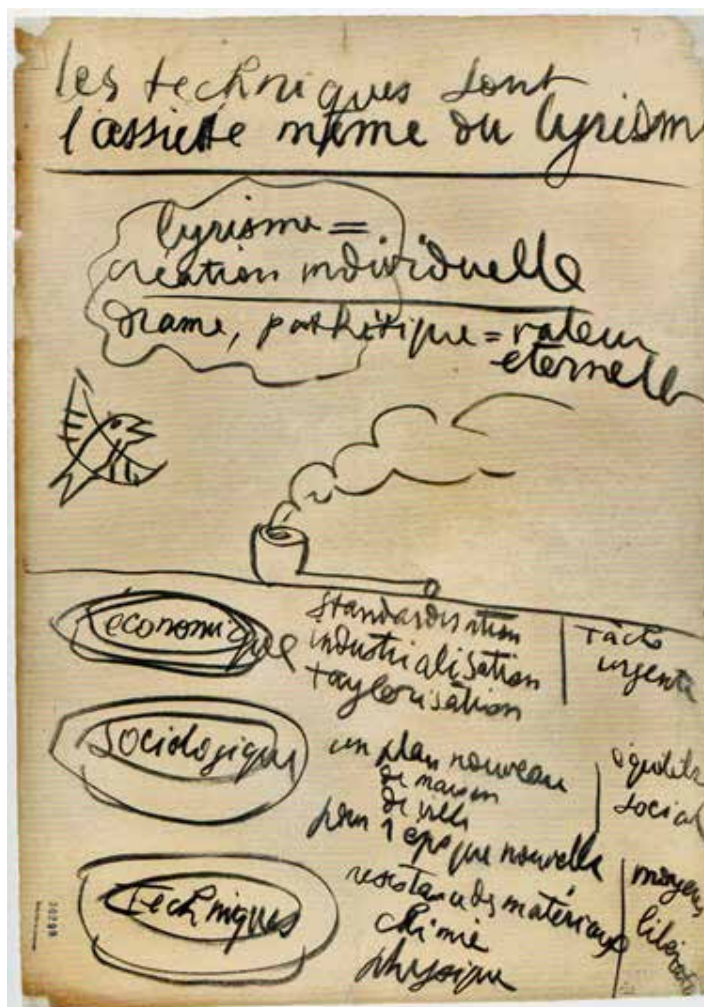 les techniques sont
l'assiette même du lyrism
lyrisme =
création individuelle
drame, pathétique = valeur
eternelle
économique
standardisation
industrialisation
taylorisation
tâche
urgente
sociologique
un plan nouveau
de maison
de ville
pour 1 epoque nouvelle
social
Techniques
resistance des matériaux
chimie
physique
moyens